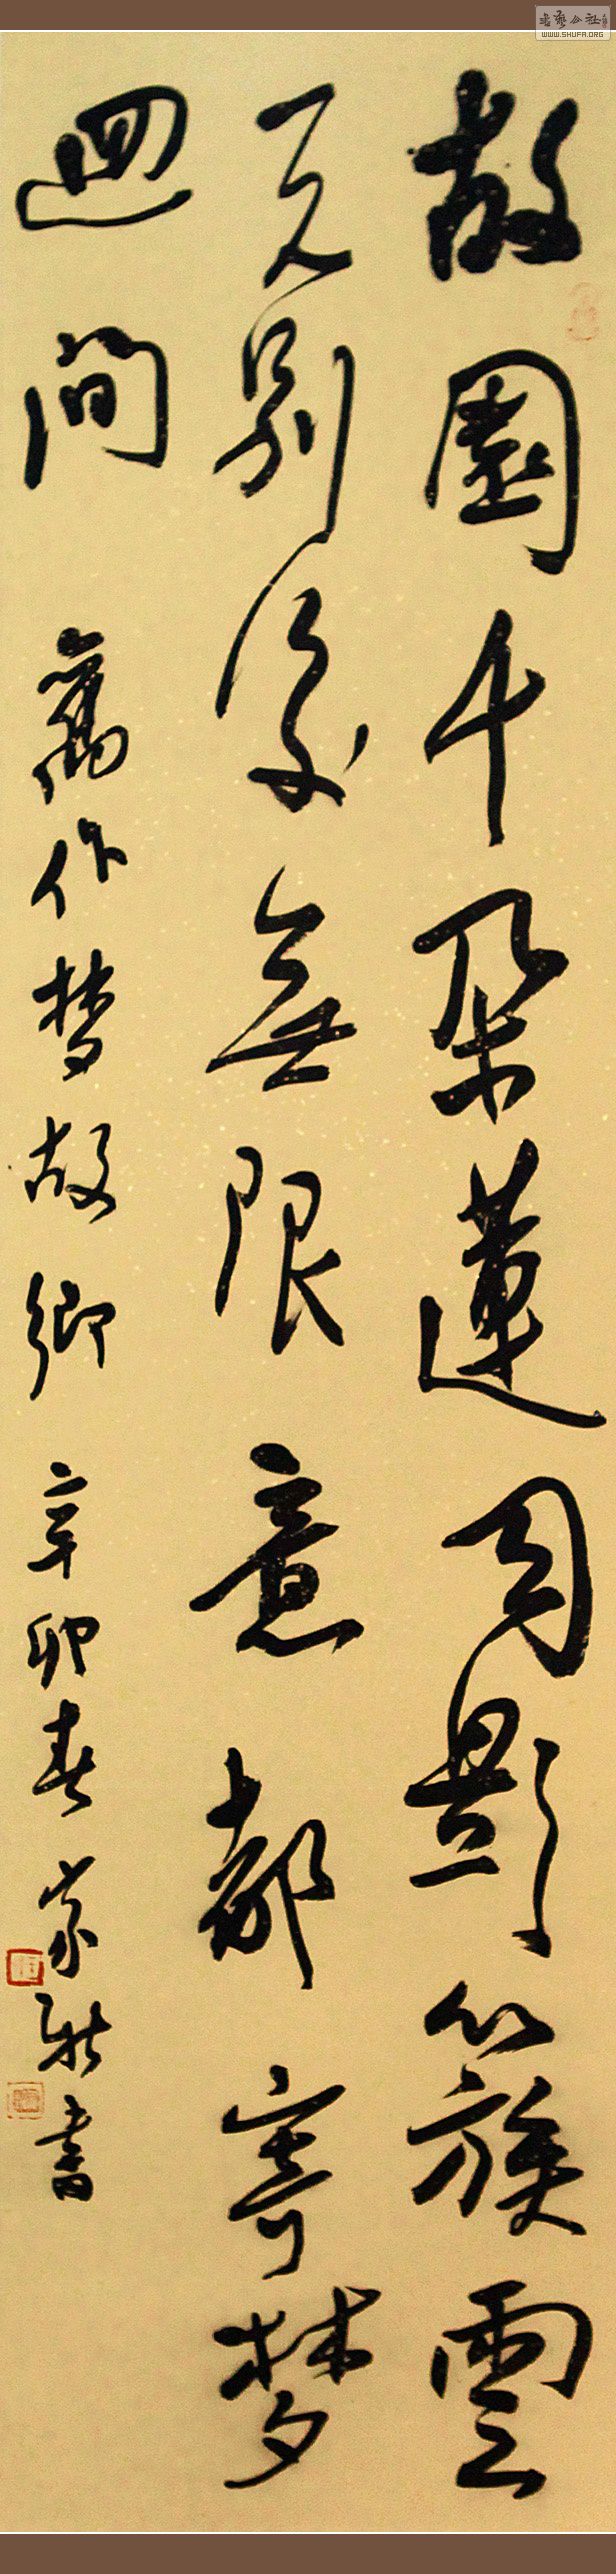 書藝公社
WWW.SHUFA.ORG
故園千朵蓮月影簇雲
天別後無限意都寄夢
迴間 舊作夢故鄉 辛卯春 書